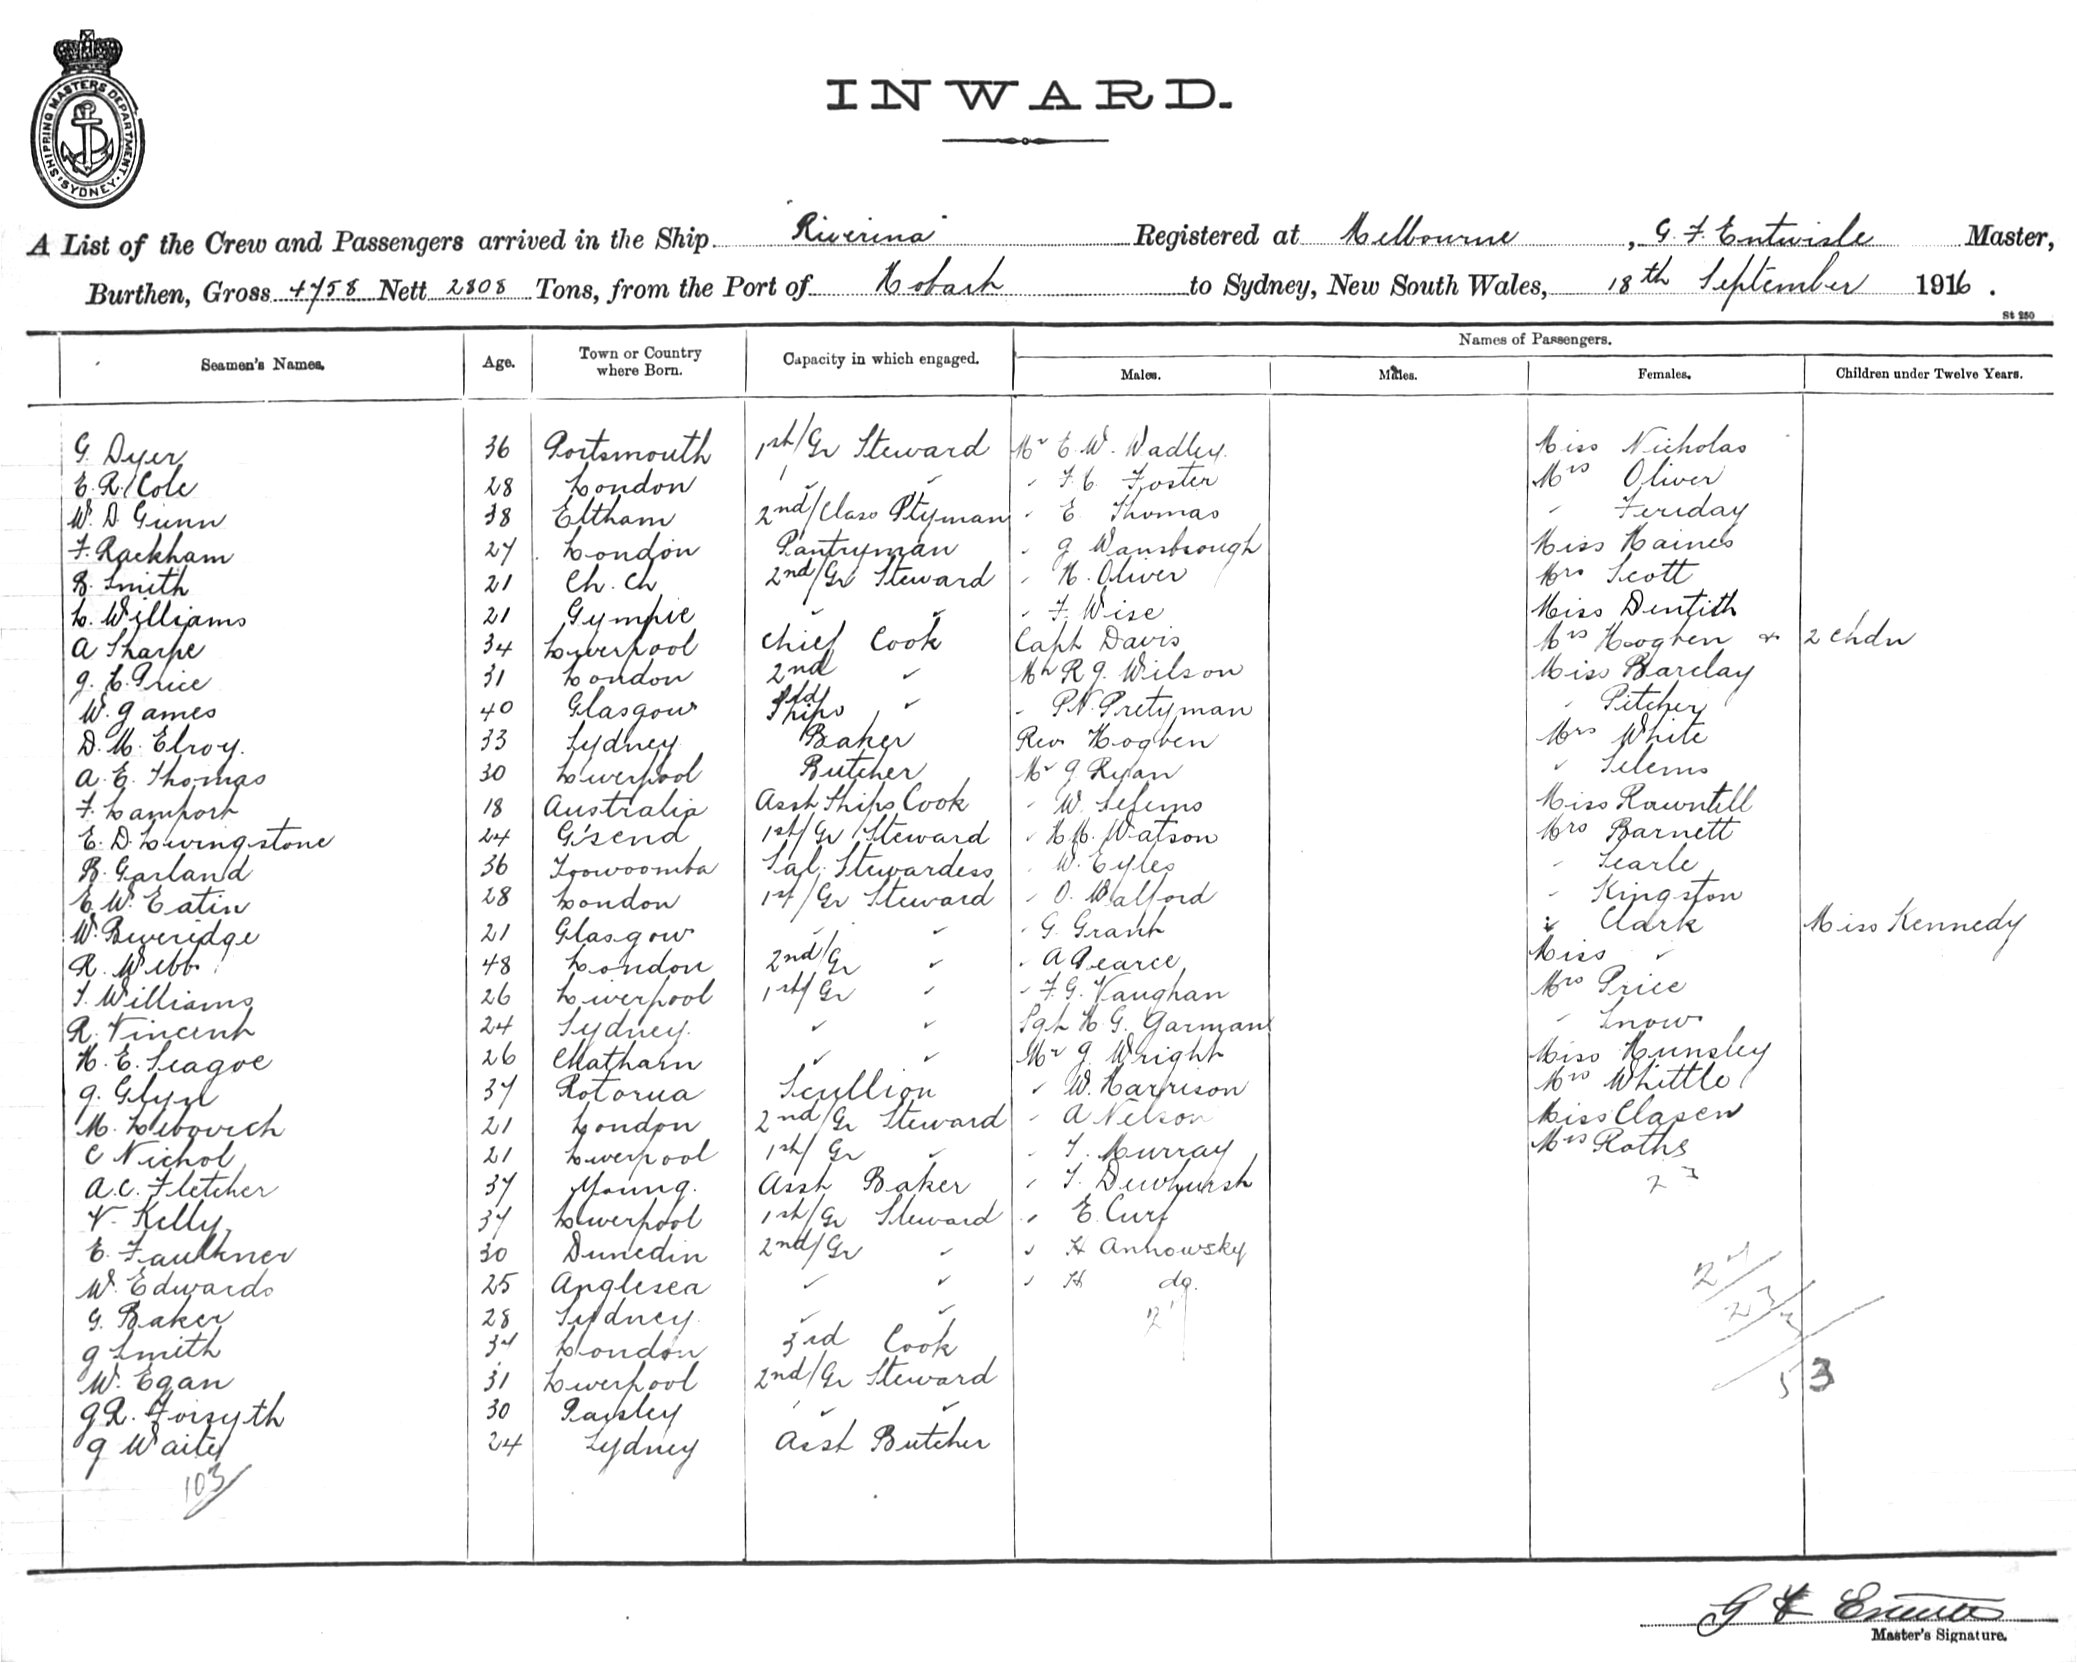 SHIPPING MASTERS DEPARTMENT SYDNEY
INWARD.
A List of the Crew and Passengers arrived in the Ship Riverina Registered at Melbourne, G. F. Entwisle Master,
Burthen, Gross 4758 Nett 2808 Tons, from the Port of Hobart to Sydney, New South Wales, 18th September 1916.
St 250
Seamen's Names. Age. Town or Country where Born. Capacity in which engaged. Names of Passengers.
Males. Males. Females. Children under Twelve Years.
G. Dyer 36 Portsmouth 1st/Gr Steward Mr E. W. Wadley Miss Nicholas
E. R. Cole 28 London " " " F. C. Foster Mrs Oliver
W. D. Gunn 38 Eltham 2nd/Class Ptyman " E. Thomas " Feriday
F. Rackham 27 London Pantryman " J Wansbrough Miss Haines
B. Smith 21 Ch. Ch 2nd/Gr Steward " H. Oliver Mrs Scott
L. Williams 21 Gympie " " " F. Wise Miss Dentith
A Sharpe 34 Liverpool Chief Cook Capt Davis Mrs Hogben & 2 chdn
J. E. Price 31 London 2nd " Mr R J. Wilson Miss Barclay
W. James 40 Glasgow Ships " " P. N. Pretyman " Pitcher
D. M. Elroy. 33 Sydney Baker Rev Hogben Mrs White
A. E. Thomas 30 Liverpool Butcher Mr J Ryan " Selems
F. Lamport 18 Australia Asst Ships Cook " W. Selems Miss Rawntell
E. D. Livingstone 24 G'send 1st/Gr Steward " H. H. Watson Mrs Barnett
B. Garland 36 Toowoomba Sal. Stewardess " W. Eyles " Searle
E. W. Eatin 28 London 1st/Gr Steward " O. Walford " Kingston
W. Beveridge 21 Glasgow " " " G. Grant " Clark Miss Kennedy
R. Webb 48 London 2nd/Gr " " A Pearce Miss "
T. Williams 26 Liverpool 1st/Gr " " F. G. Vaughan Mrs Price
R. Vincent 24 Sydney. " " Sgt H. G. Garman " Snow
H. E. Seagoe 26 Chatham " " Mr J. Wright Miss Hunsley
J. Glyn 37 Rotorua Scullion " W. Harrison Mrs Whittle
M. Libovich 21 London 2nd/Gr Steward " A Nelson Miss Clasen
C Nichol 21 Liverpool 1st/Gr " " T. Murray Mrs Roths
A. C. Fletcher 37 Young. Asst Baker " T. Dewhurst 23
V. Kelly 37 Liverpool 1st/Gr Steward " E. Curf
E. Faulkner 30 Dunedin 2nd/Gr " " H Annowsky
W. Edwards 25 Anglesea " " " H do.
G. Baker 28 Sydney. " " 27
J Smith 34 London 3rd Cook
W. Egan 31 Liverpool 2nd/Gr Steward
J R. Forsyth 30 Paisley " "
J Waite 24 Sydney Asst Butcher
103
27
23
3
53
G F Entwisle
Master's Signature.